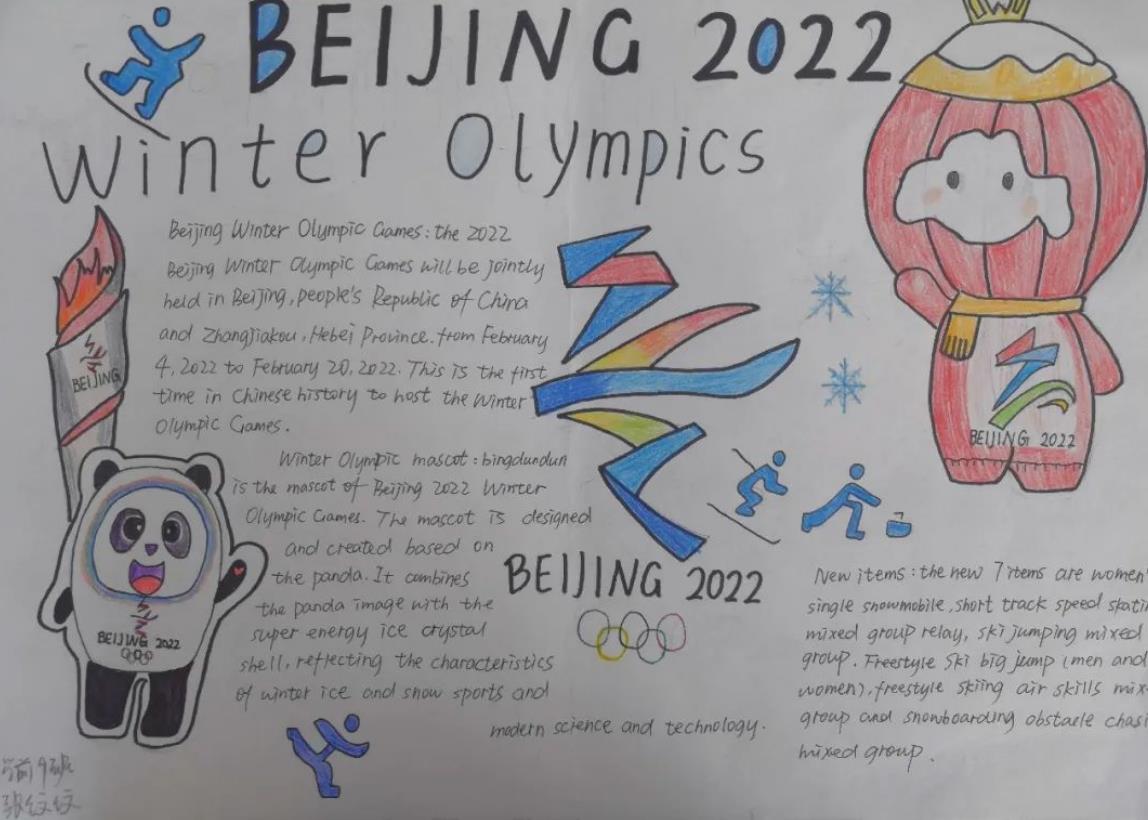 BEIJING 2022
Winter Olympics
Beijing Winter Olympic Games: the 2022
Beijing Winter Olympic Games will be jointly
held in Beijing, people's Republic of China
and Zhangjiakou, Hebei Province. from February
4, 2022 to February 20, 2022. This is the first
time in Chinese history to host the Winter
Olympic Games.
Winter Olympic mascot: bingdundun
is the mascot of Beijing 2022 Winter
Olympic Games. The mascot is designed
and created based on
the panda. It combines
the panda image with the
super energy ice crystal
shell, reflecting the characteristics
of winter ice and snow sports and
modern science and technology.
BEIJING
BEIJING 2022
BEIJING 2022
BEIJING 2022
New items: the new 7 items are women'
single snowmobile, short track speed skatin
mixed group relay, ski jumping mixed
group. Freestyle ski big jump (men and
women), freestyle skiing air skills mix
group and snowboarding obstacle chasi
mixed group.
9班
张纹纹